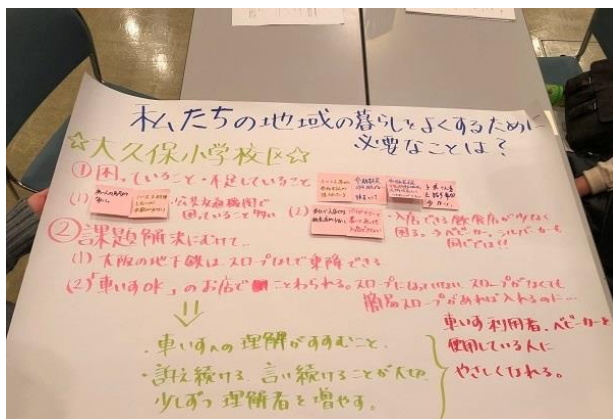 私たちの地域の暮らしをよくするために
必要なことは?
☆大久保小学校区☆
①困っていること・不足していること
(1)
・公共交通機関で
困っていること多い
(2)
・入店できる飲食店が少なく
困る。→ベビーカー、シルバーカーも
同じでは!!
②課題解決にむけて..
(1) 大阪の地下鉄はスロープなしで乗降できる
(2)「車いすOK」のお店でことわられる。スロープになっていない スロープがなくても
簡易スロープがあれば入れるのに…
⇓
・車いすへの理解がすすむこと、
・訴え続ける、言い続けることが大切
少しずつ理解者を増やす。
車いす利用者、ベビーカーを
使用している人に
やさしくなれる。